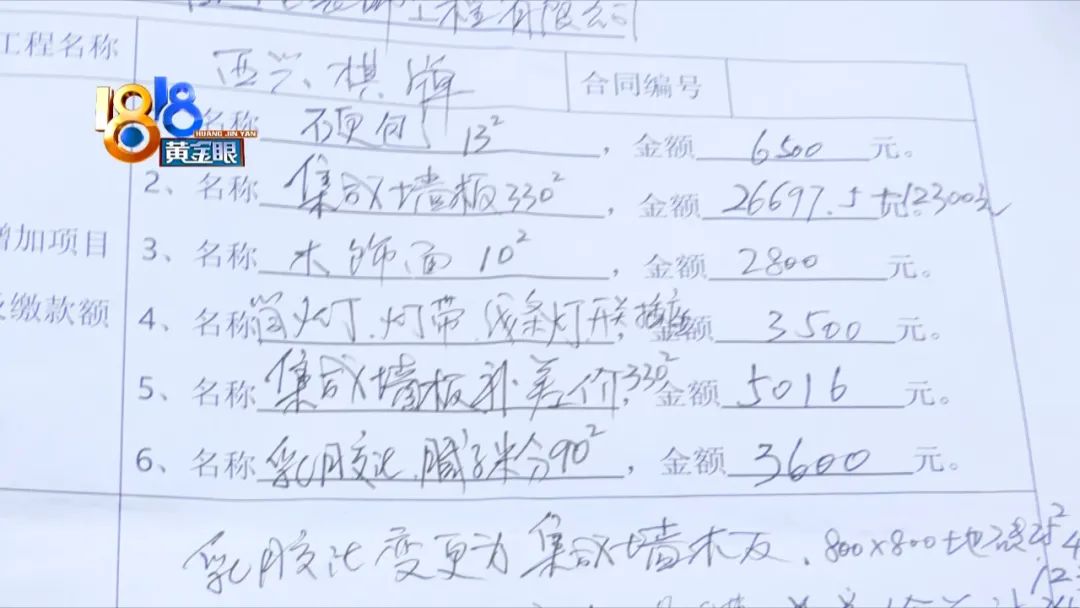 工程有限公司
工程名称 西兴、棋牌 合同编号
1818
HUANG JIN YAN
黄金眼
名称 硬包 13²，金额 6500 元。
2、名称 集成墙板330²，金额 26697.5 元
3、名称 木饰面 10²，金额 2800 元。
增加项目
4、名称 筒灯.灯带.线条灯.开关插座 金额 3500 元。
及缴款额
5、名称 集成墙板补差价，330² 金额 5016 元。
6、名称 乳胶漆.腻子米分90²，金额 3600 元。
乳胶漆变更为集成墙木反、800×800土地